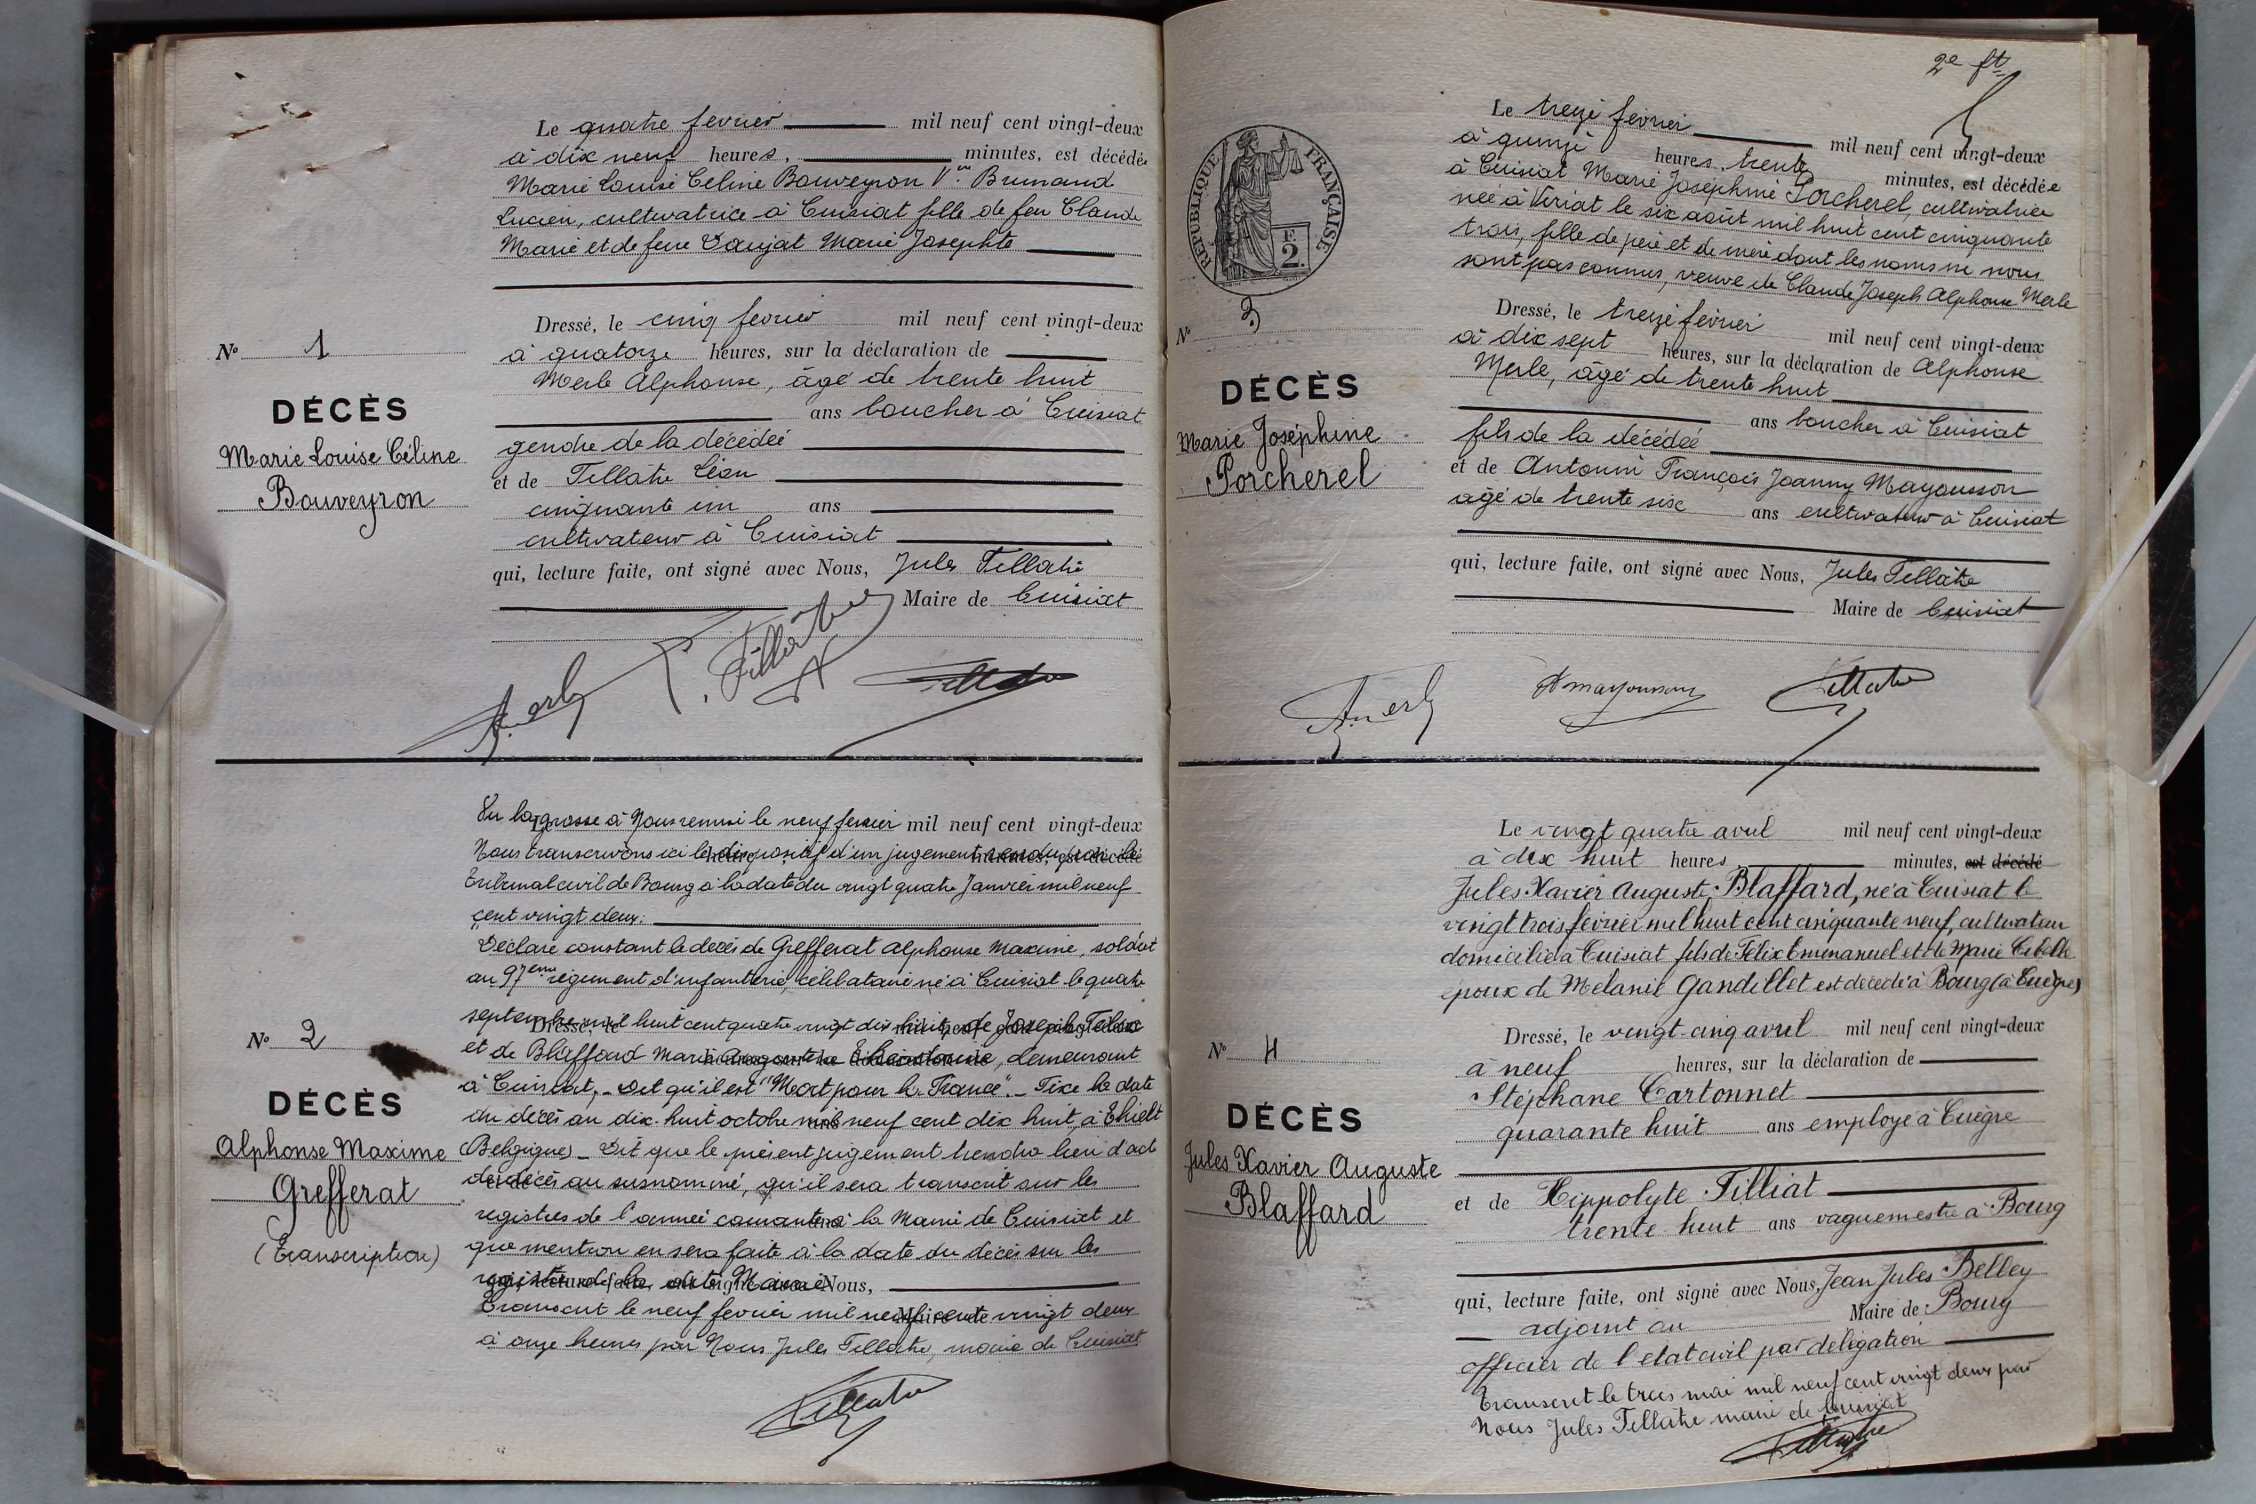 Le quatre fevrier mil neuf cent vingt-deux
à dix neuf heures, minutes, est décédée
Marie Louise Céline Bouveyron Vve Brunand
Lucien, cultivatrice à Cuisiat fille de feu Claude
Marie et de feue Vaujat Marie Josephte
Dressé, le cinq fevrier mil neuf cent vingt-deux
à quatorze heures, sur la déclaration de
Merle Alphonse, âgé de trente huit
ans boucher à Cuisiat
gendre de la décédée
et de Tillatre Léon
cinquante un ans
cultivateur à Cuisiat
qui, lecture faite, ont signé avec Nous, Jules Tillatre
Maire de Cuisiat
No 1
DÉCÈS
Marie Louise Céline
Bouveyron
A. Merle Tillatre Tillatre
Vu la grosse à Nous remise le neuf fevrier mil neuf cent vingt-deux
Nous transcrivons ici le dispositif d'un jugement rendu par le
Tribunal civil de Bourg à la date du vingt quatre Janvier mil neuf
cent vingt deux:
"Déclare constant le décès de Grefferat Alphonse Maxime, soldat
au 97eme régiment d'infanterie, célibataire né à Cuisiat le quatre
septembre mil huit cent quatre vingt dix huit, de Joseph
et de Blaffard Marie, demeurant
à Cuisiat, - Dit qu'il est "Mort pour la France". - Fixe la date
du décès au dix-huit octobre mil neuf cent dix huit, à Thielt
(Belgique) - Dit que le présent jugement tiendra lieu d'acte
de décès au susnommé, qu'il sera transcrit sur les
registres de l'année courante à la Mairie de Cuisiat et
que mention en sera faite à la date du décès sur les
registres de la dite Mairie
Transcrit le neuf fevrier mil neuf cent vingt deux
à onze heures par Nous Jules Tillatre, maire de Cuisiat
No 2
DÉCÈS
Alphonse Maxime
Grefferat
(Transcription)
Tillatre
2e ft
RÉPUBLIQUE FRANÇAISE
F.
2.
Le treize février mil neuf cent vingt-deux
à quinze heures, trente minutes, est décédée
à Cuisiat Marie Joséphine Porcherel, cultivatrice
née à Viriat le six août mil huit cent cinquante
trois, fille de père et de mère dont les noms ne nous
sont pas connus, veuve de Claude Joseph Alphonse Merle
Dressé, le treize février mil neuf cent vingt-deux
à dix sept heures, sur la déclaration de Alphonse
Merle, âgé de trente huit
ans boucher à Cuisiat
fils de la décédée
et de Antonin François Joanny Mayousson
âgé de trente six ans cultivateur à Cuisiat
qui, lecture faite, ont signé avec Nous, Jules Tillatre
Maire de Cuisiat
No 3
DÉCÈS
Marie Joséphine
Porcherel
A. Merle A Mayousson Tillatre
Le vingt quatre avril mil neuf cent vingt-deux
à dix huit heures minutes, est décédé
Jules Xavier Auguste Blaffard, né à Cuisiat le
vingt trois février mil huit cent cinquante neuf, cultivateur
domicilié à Cuisiat fils de Félix Emmanuel et de Marie
époux de Melanie Gandillet est décédé à Bourg (à Cuègre)
Dressé, le vingt-cinq avril mil neuf cent vingt-deux
à neuf heures, sur la déclaration de
Stéphane Cartonnet
quarante huit ans employé à Cuègre
et de Hippolyte Tilliat
trente huit ans vaguemestre à Bourg
qui, lecture faite, ont signé avec Nous, Jean Jules Belley
adjoint au Maire de Bourg
officier de l'état civil par délégation
Transcrit le trois mai mil neuf cent vingt deux par
Nous Jules Tillatre maire de Cuisiat
No 4
DÉCÈS
Jules Xavier Auguste
Blaffard
Tillatre